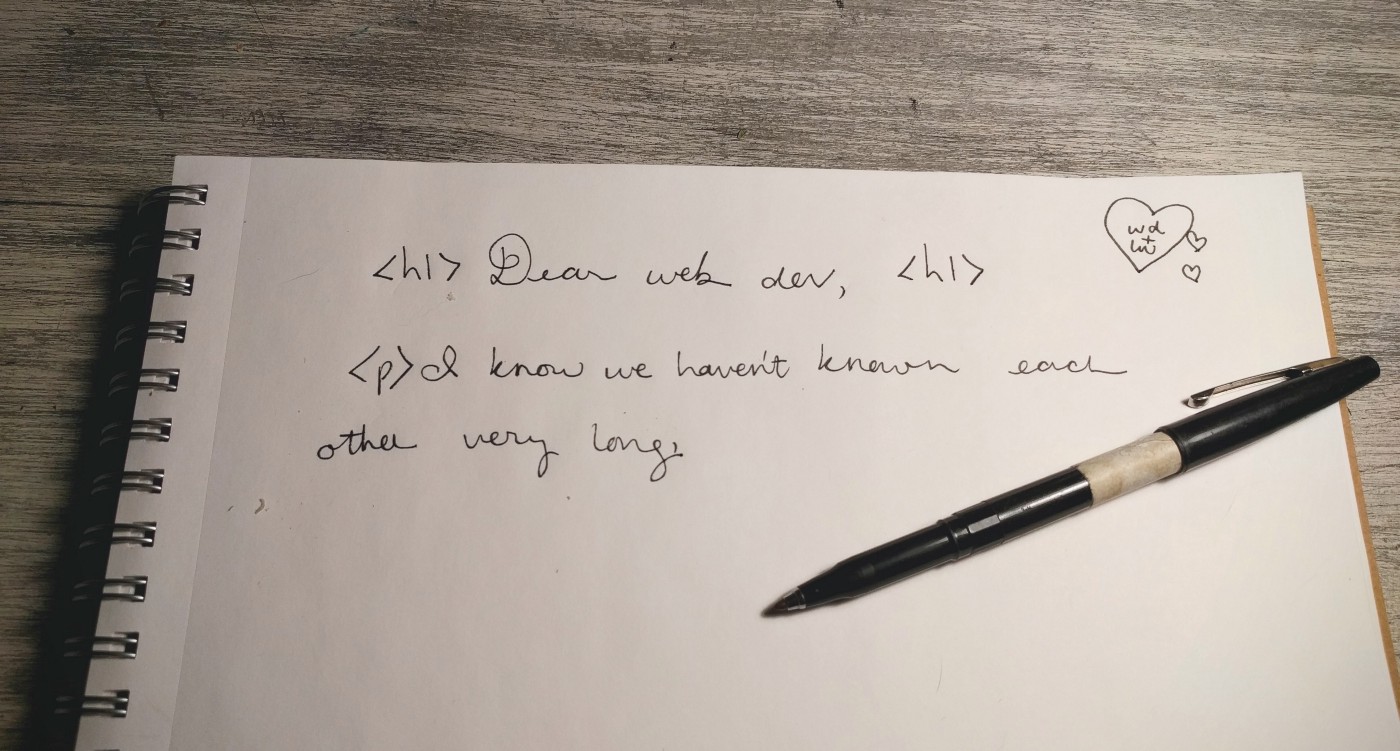 <h1> Dear web dev, <h1>
wd
+
lw
<p>I know we haven't known each
other very long,